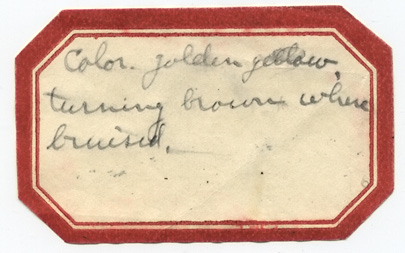 Color. golden yellow,
turning brown where
bruised.